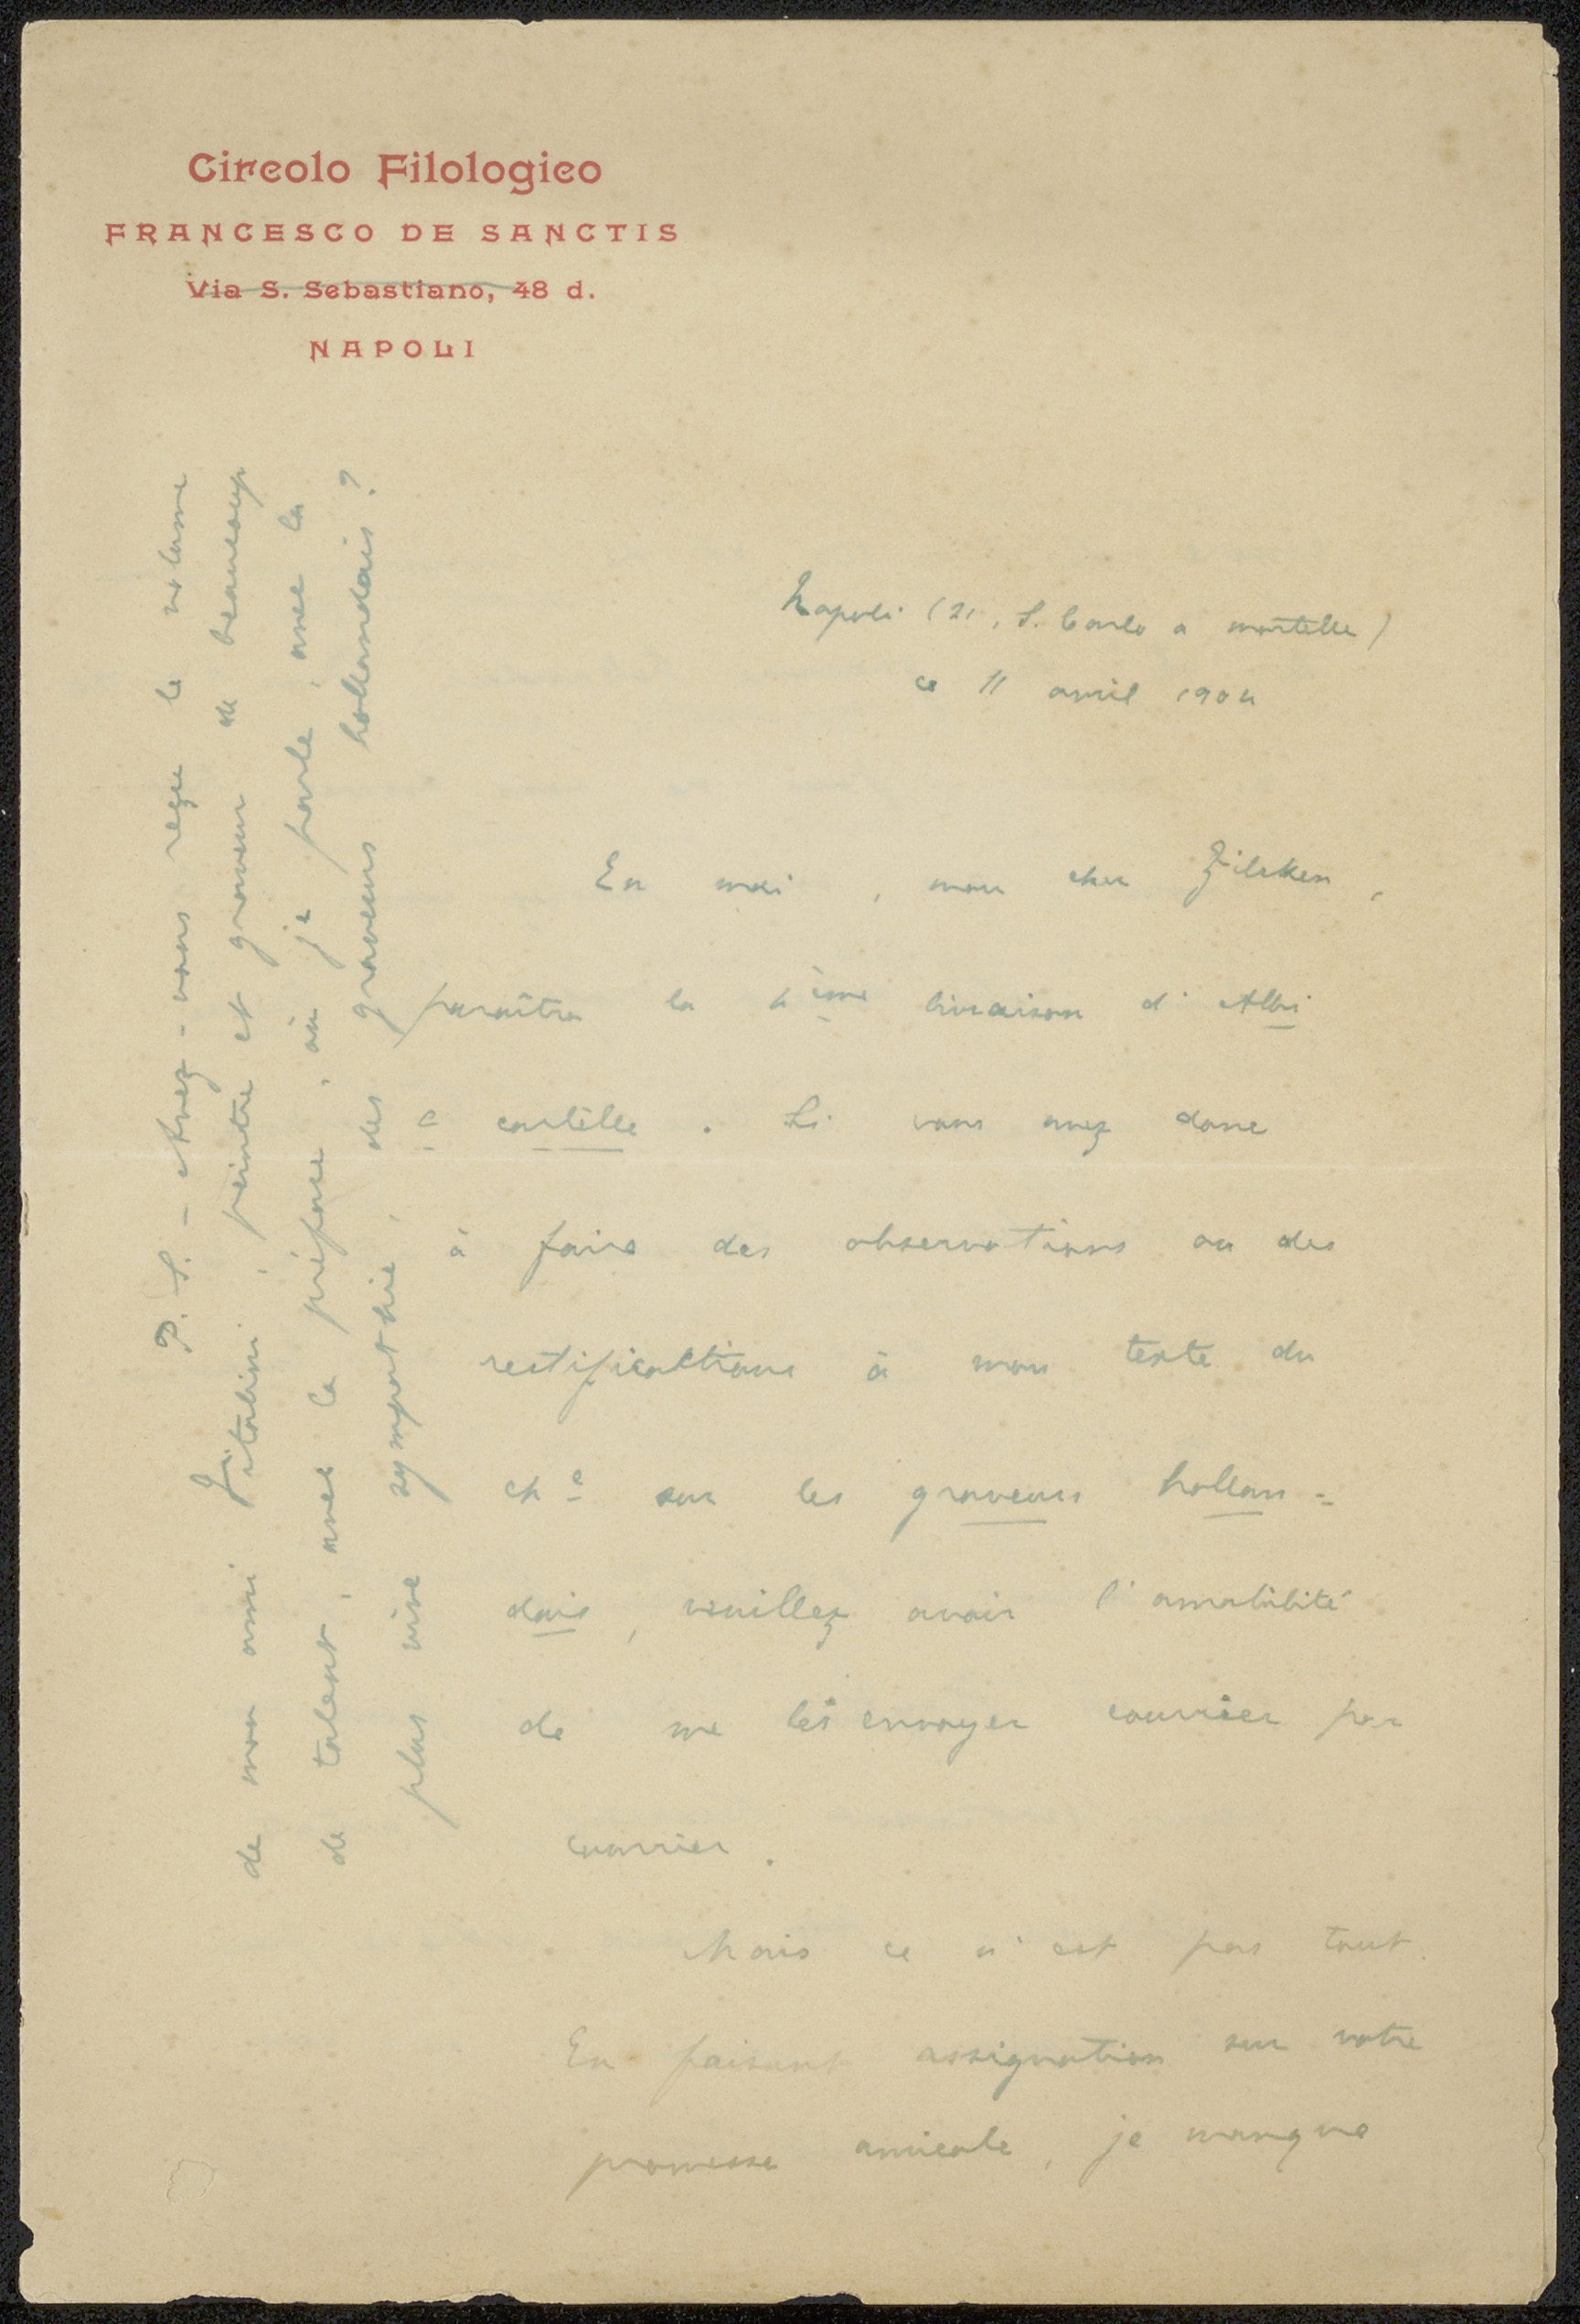 Circolo Filologico
FRANCESCO DE SANCTIS
Via S. Sebastiano, 48 d.
NAPOLI
Napoli (21, S. Carlo a mortelle)
ce 11 avril 1904
En mai, mon cher Zilcken,
paraîtra la 4ème livraison d'Albi
e cartelle. Si vous avez donc
à faire des observations ou des
restifications à mon texte du
che sur les graveurs hollan=
dais, veuillez avoir l'amabilité
de me les envoyer courrier par
courrier.
Mais ce n'est pas tout.
En faisant assignation sur votre
promesse amicale, je manque
P. S. - Avez-vous reçu le volume
de mon ami Vitalini, peintre et graveur de beaucoup
de talent, avec la préface, où je parle, avec la
plus vive sympathie, des graveurs hollandais?